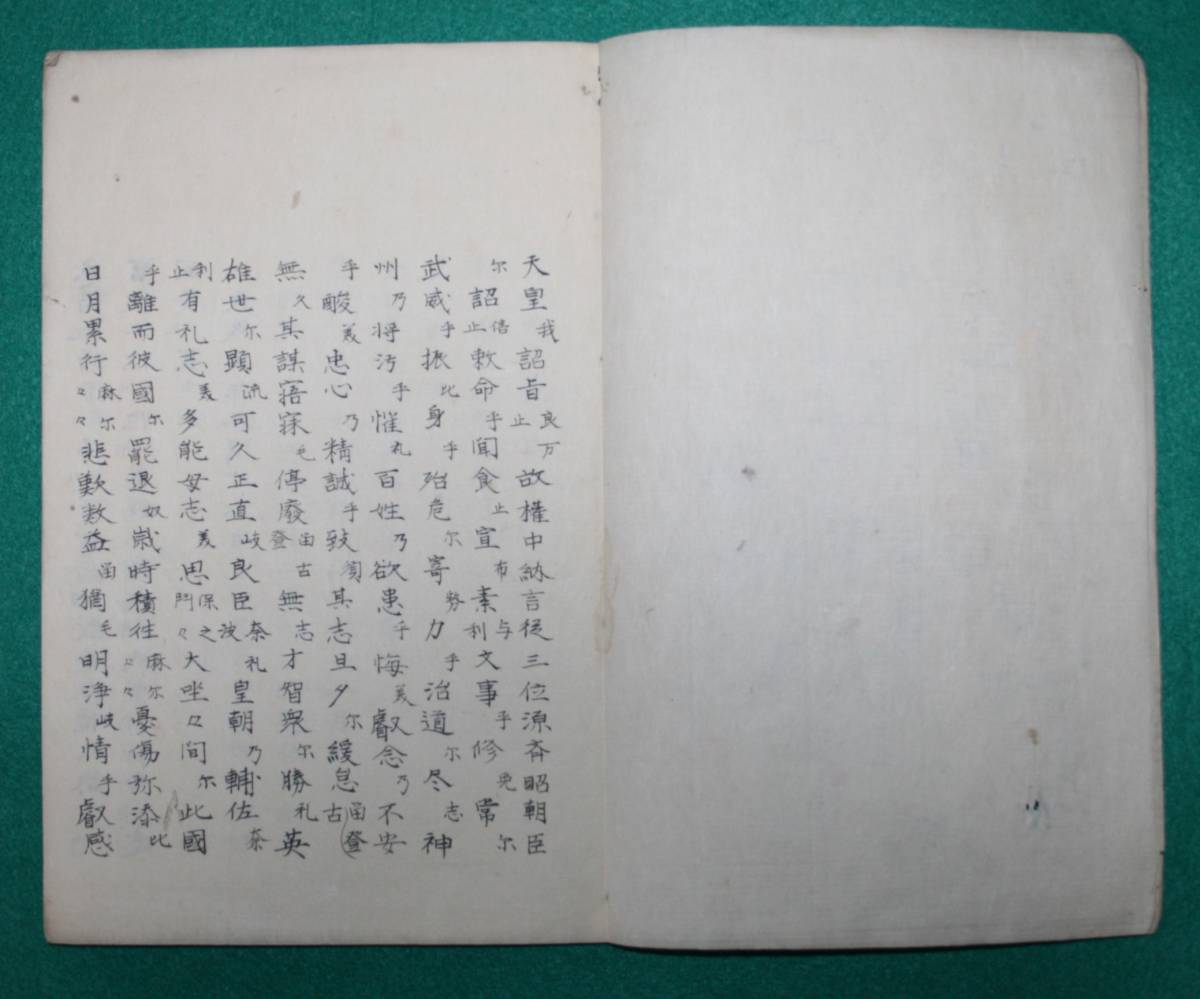 天皇我詔旨良万止故權中納言從三位源斉昭朝臣
尓詔倍止敕命乎聞食止宣布素与利文事乎修免常尓
武威乎振比身乎殆危尓寄勢力乎治道尓尽志神
州乃将汚乎惟礼百姓乃欲患乎悔美叡念乃不安
乎酸美忠心乃精誠乎致須其志旦夕尓緩怠凾登古
無久其謀寤寐毛停廢凾古登無志才智衆尓勝礼英
雄世尓顕流可久正直岐良臣奈礼波皇朝乃輔佐奈
利止有礼志美多能母志美思保之門々大坐々間尓此國
乎離而彼國尓罷退奴歳時積往麻尓々々憂傷弥添比
日月累行麻尓々々悲歎数益凾猶毛明浄岐情乎叡感